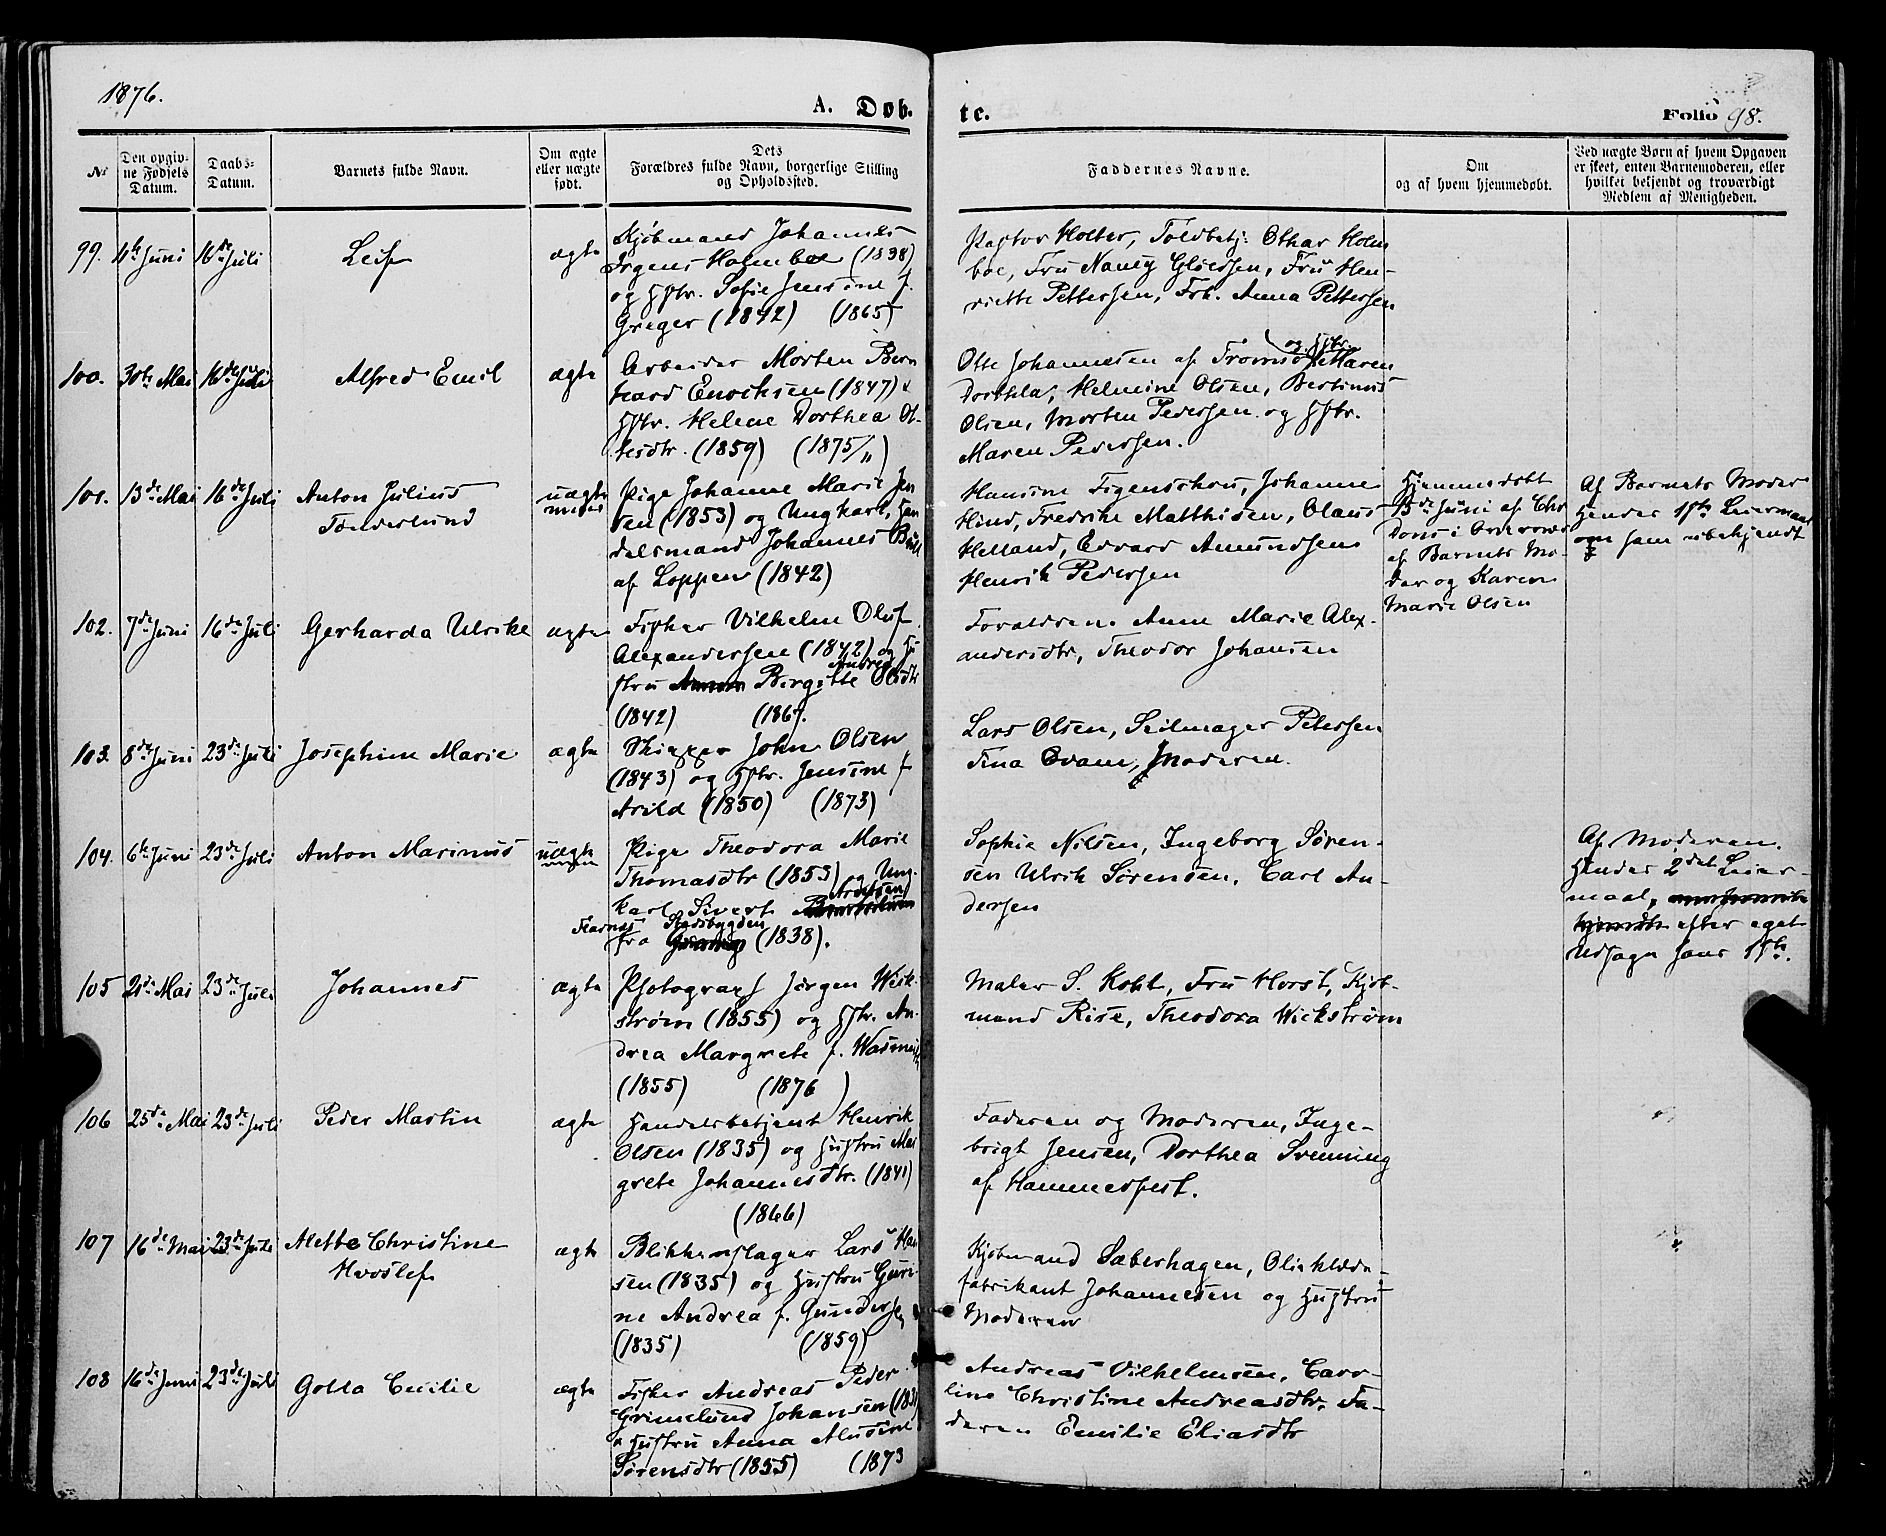 1876.
A. Døb-
te.
Folio 98.
No
Den opgiv-
ne Fødsels
Datum.
Daabs-
Datum.
Barnets fulde Navn.
Om ægte
eller uægte
født.
Dets
Forældres fulde Navn, borgerlige Stilling
og Opholdssted.
Faddernes Navne.
Om
og af hvem hjemmedøbt.
Ved uægte Børn af hvem Opgaven
er skeet, enten Barnemoderen, eller
hvilket bekjendt og troværdigt
Medlem af Menigheden.
99. 11te Juni 16de Juli Leif ægte
Kjøbmand Johannes
Irgens Holmboe (1838)
og Hstr. Sofie Jensine f.
Greger (1842) (1865)
Pastor Holter, Toldbetj. Othar Holm
boe, Fru Nancy Gløersen, Fru Hen-
riette Pettersen, Frk. Anna Pettersen
100. 30te Mai 16de Juli Alfred Emil ægte
Arbeider Morten Bern
hard Enochsen (1847) &
Hstr. Helene Dorthea Ot-
tesdtr. (1859) (1875/11)
Otte Johannesen af Tromsø og Hstr. Maren
Dorthea, Helmine Olsen, Bertinus
Olsen, Morten Pedersen og Hstr.
Maren Pedersen.
101. 13de Mai 16de Juli Anton Julius
Tønderlund
uægte
Pige Johanne Marie Jen
sen (1853) og Ungkarl, Han
delsmand Johannes
af Loppen (1842)
Hansine Figenschou, Johanne
Hind, Fredrike Matthisen, Olaus
Helland, Edvard Amundsen
Henrik Pedersen
Hjemmedøbt
15de Juni af Chr
Dons i Overvær
af Barnets Mo-
der og Karen
Marie Olsen
Af Barnets Moder
Hendes 1ste Leiermaal
om ham ubekjendt
102. 7de Juni 16de Juli Gerharda Ulrike ægte
Fisker Vilhelm Oluf
Alexandersen (1842) og Hu
stru Birgitte Olsdtr
(1842) (1867.
Forældrene. Anne Marie Alex-
andersdtr, Theodor Johansen
103. 8de Juni 23de Juli Josephine Marie ægte
Skipper John Olsen
(1843) og Hstr. Jensine f
Arild (1850) (1873)
Lars Olsen, Seilmager Petersen
Tina Qvam, Moderen.
104. 6te Juni 23de Juli Anton Marinus uægte
Pige Theodora Marie
Thomasdtr (1853) og Ung-
karl Sivert Arntsen
fra Stadsbygden (1838).
Sophie Nilsen, Ingeborg Søren-
sen Ulrik Sørensen, Carl An-
dersen
Af Moderen.
Hendes 2det Leier-
maal, efter eget
Udsagn hans 1ste.
105 21de Mai 23de Juli Johannes ægte
Photograph Jørgen Wick-
strøm (1855) og Hstr. An-
drea Margrete f.
(1855) (1876)
Maler S. Koht, Fru Horst, Kjøb-
mand Rise, Theodora Wickstrøm
106 25de Mai 23de Juli Peder Martin ægte
Handelsbetjent Henrik
Olsen (1835) og Hustru Mar
grete Johannesdtr. (1841)
(1866)
Faderen og Moderen, Inge-
brigt Jensen, Dorthea Svenning
af Hammerfest.
107 16de Mai 23de Juli Alette Christine
Hvoslef
ægte
Blikkenslager Lars Han
sen (1835) og Hustru Guri-
ne Andrea f. Gundersen
(1835) (1859)
Kjøbmand Sæberhagen, Olieklæde-
fabrikant Johannesen og Hustru
Moderen
108 16de Juni 23de Juli Golla Emilie ægte
Fisker Andreas Peder
Grimelund Johansen
& Hustru Anna Alusine
Sørensdtr (1855) (1873
Andreas Vilhelmsen, Caro-
line Christine Andreasdtr, Fa-
deren Emilie Eliasdtr